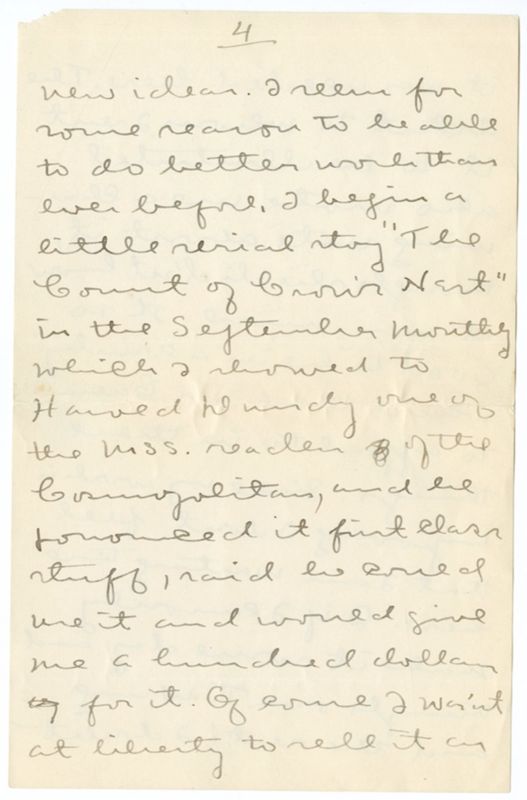 4
new ideas. I seem for
some reason to be able
to do better work than
ever before. I begin a
little serial story "The
Count of Crow's Nest"
in the September Monthly
which I showed to
Harved Dundy one of
the MSS. readers of the
Cosmopolitan, and he
pronounced it first class
stuff, said he could
use it and would give
me a hundred dollars
for it. Of course I was'nt
at liberty to sell it as